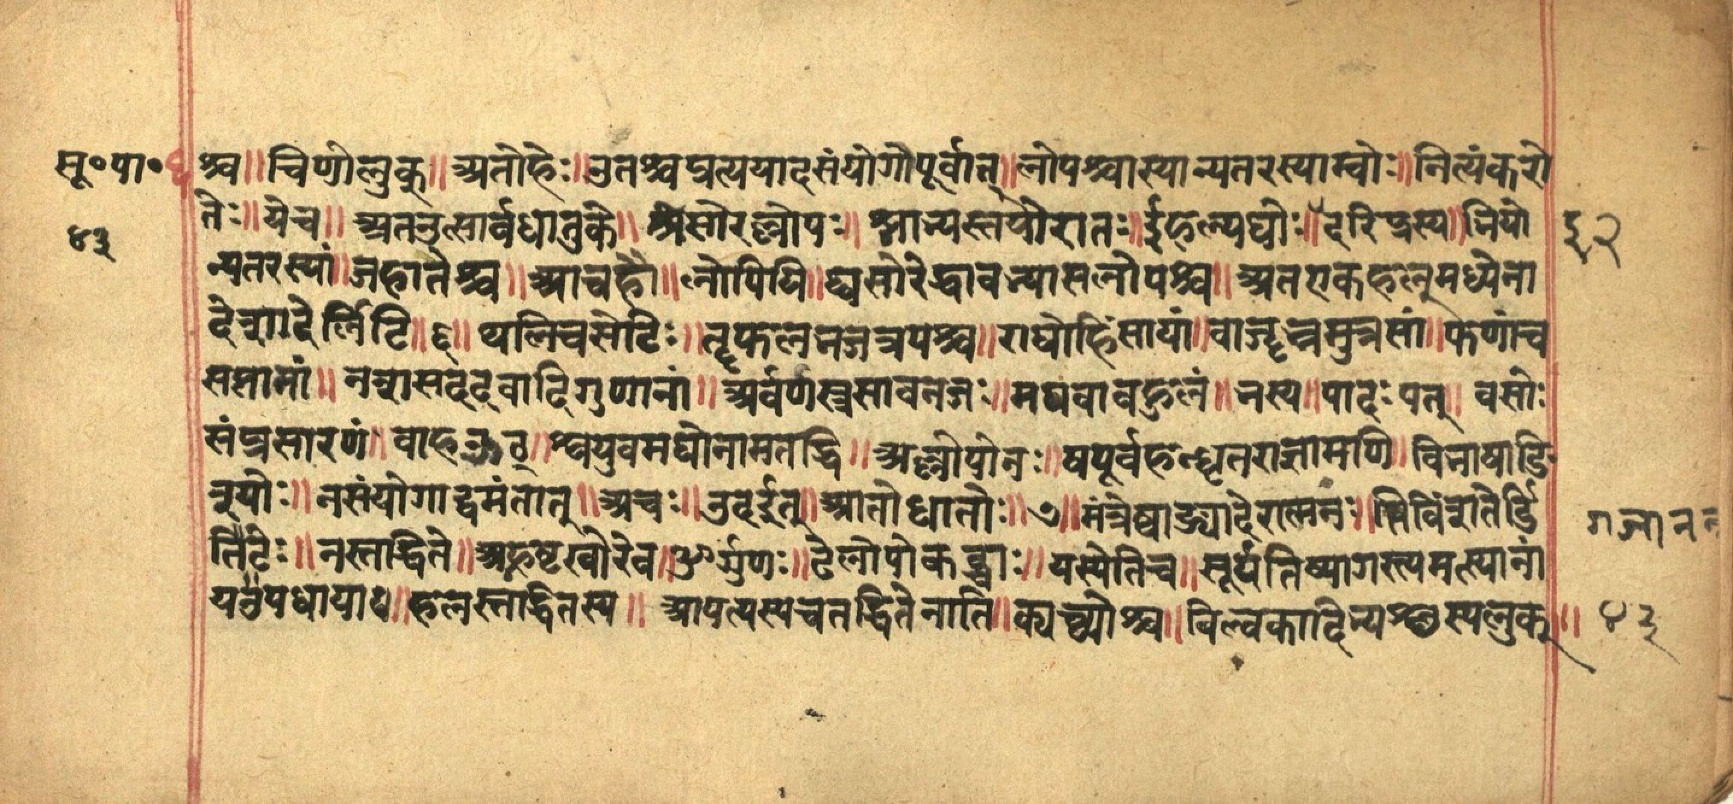 सू॰पा॰ ६
४३
श्च॥ चिणोलुक्॥ अतोहेः॥ उतश्चप्रत्ययादसंयोगपूर्वात्॥ लोपश्चास्यान्यतरस्याम्वोः॥ नित्यंकरो
तेः॥ येच॥ अतउत्सार्वधातुके॥ श्नसोरल्लोपः॥ श्नाभ्यस्तयोरातः॥ ईहल्यघोः॥ इद्दरिद्रस्य॥ भियो
न्यतरस्यां॥ जहातेश्च॥ आचहौ॥ लोपोयि॥ घ्वसोरेद्धावभ्यासलोपश्च॥ अतएकहल्मध्येना
देशादेर्लिटि॥ ६॥ थलिचसेटिः॥ तॄफलभजत्रपश्च॥ राधोहिंसायां॥ वाजॄभ्रमुत्रसां॥ फणांच
सप्तानां॥ नशसददवादिगुणानां॥ अर्वणस्त्रसावनञः॥ मघवाबहुलं॥ भस्य॥ पादःपत्॥ वसोः
संप्रसारणं॥ वाहऊठ्॥ श्वयुवमघोनामतद्धि॥ अल्लोपोनः॥ षपूर्वहन्धृतराज्ञामणि॥ विभाषाङि
श्योः॥ नसंयोगाद्वमंतात्॥ अचः॥ उदईत्॥ आतोधातोः॥ ७॥ मंत्रेष्वाङ्यादेरात्मनः॥ तिविंशतेर्डि
ति॥ टेः॥ नस्तद्धिते॥ अह्नष्टखोरेव॥ ओर्गुणः॥ ढेलोपोकद्र्वाः॥ यस्येतिच॥ सूर्यतिष्यागस्त्यमत्स्यानां
यउपधायाः॥ हलस्तद्धितस्य॥ आपत्यस्यचतद्धितेनाति॥ क्यच्व्योश्च॥ बिल्वकादिभ्यश्छस्यलुक्॥
६२
गजानन
४३